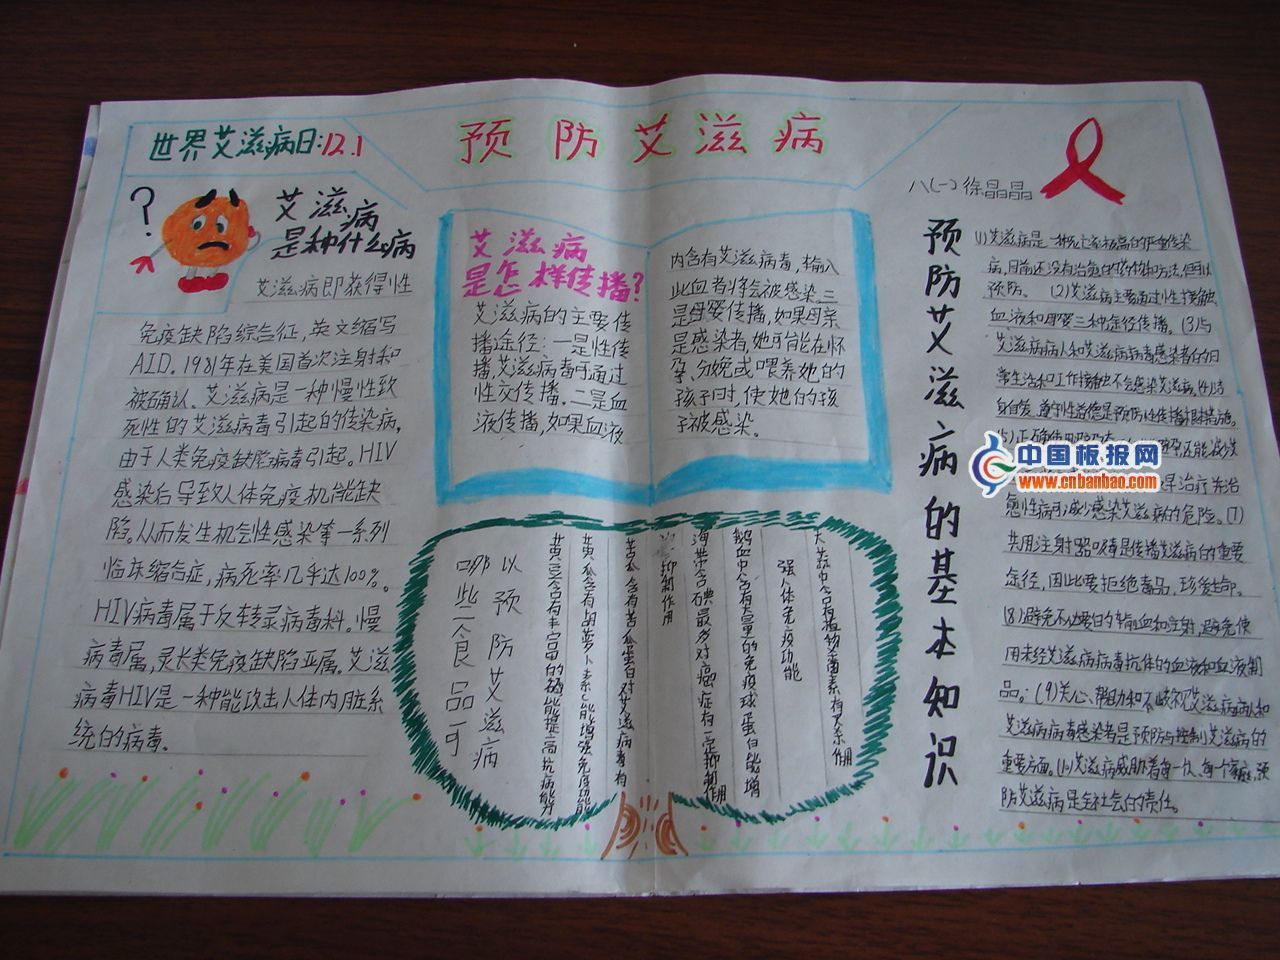 世界艾滋病日:12.1
预防艾滋病
八(一)徐晶晶
?
艾滋病
是种什么病
艾滋病即获得性
免疫缺陷综合征,英文缩写
AID。1981年在美国首次注射和
被确认。艾滋病是一种慢性致
死性的艾滋病毒引起的传染病,
由于人类免疫缺陷病毒引起。HIV
感染后导致人体免疫机能缺
陷。从而发生机会性感染等一系列
临床综合症,病死率几乎达100%。
HIV病毒属于反转录病毒科。慢
病毒属,灵长类免疫缺陷亚属。艾滋
病毒HIV是一种能攻击人体内脏系
统的病毒。
艾滋病
是怎样传播?
艾滋病的主要传
播途径:一是性传
播,艾滋病毒可通过
性交传播。二是血
液传播,如果血液
内含有艾滋病毒,输入
此血者将会被感染。三
是母婴传播,如果母亲
是感染者,她可能在怀
孕、分娩或喂养她的
孩子时,使她的孩
子被感染。
哪些食品可
以预防艾滋病
黄豆含有丰富的硒能提高抗病能力
黄瓜含有胡萝卜素能增强免疫功能
苦瓜含有苦瓜蛋白对艾滋病毒有
抑制作用
海带含碘最多对癌症有一定抑制作用
鹅血中含有大量的免疫球蛋白能增
强人体免疫功能
大蒜中含有植物杀菌素有杀菌作用
预防艾滋病的基本知识
(1)艾滋病是一种死亡率极高的严重传染
病,目前还没有治愈的药物和方法,但可以
预防。(2)艾滋病主要通过性接触、
血液和母婴三种途径传播。(3)与
艾滋病病人和艾滋病病毒感染者的日
常生活和工作接触不会感染艾滋病。(4)洁
身自爱、遵守性道德是预防性传播根本措施。
(5)正确使用
早治疗并治
愈性病可减少感染艾滋病的危险。(7)
共用注射器吸毒是传播艾滋病的重要
途径,因此要拒绝毒品,珍爱生命。
(8)避免不必要的输血和注射,避免使
用未经艾滋病病毒抗体的血液和血液制
品。(9)关心、帮助和不歧视艾滋病病人和
艾滋病病毒感染者是预防与控制艾滋病的
重要方面。(10)艾滋病威胁着每一人、每一个家庭,预
防艾滋病是全社会的责任。
中国板报网
www.cnbanbao.com